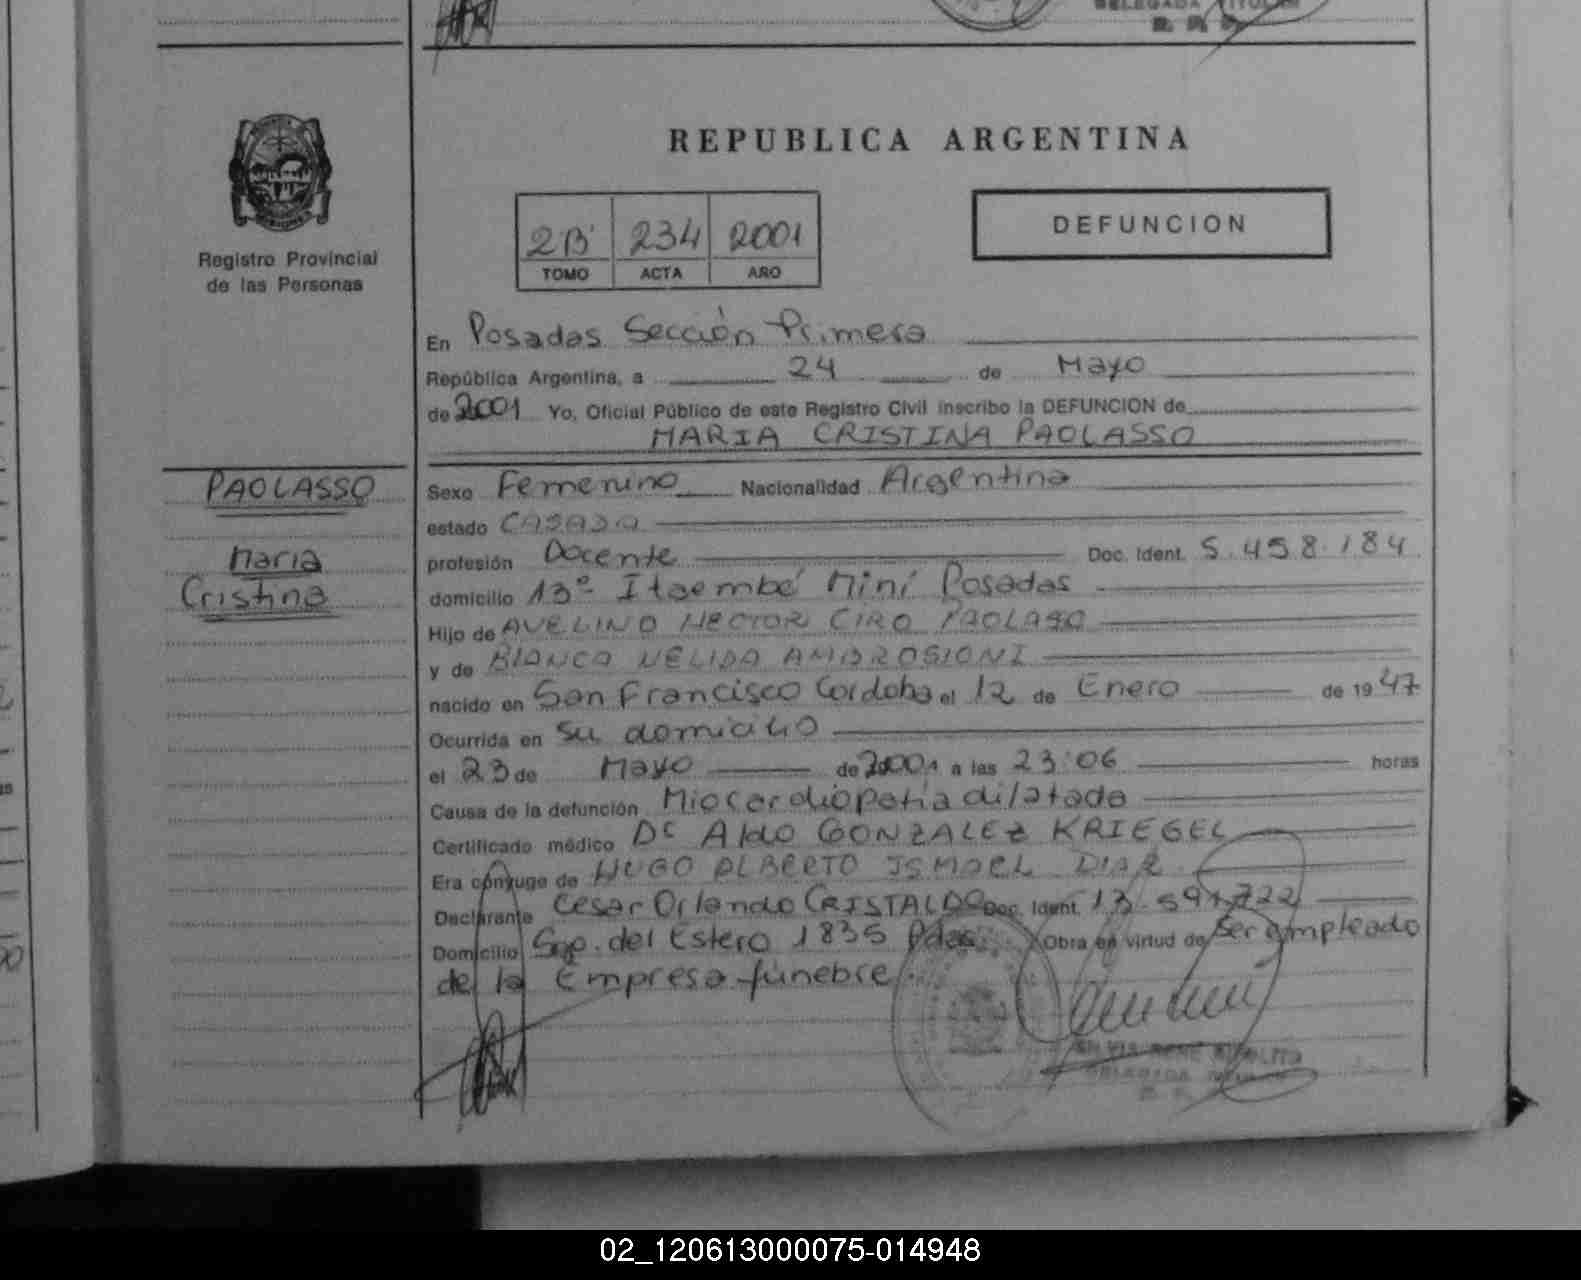 REPUBLICA ARGENTINA
Registro Provincial
de las Personas
2B 234 2001
TOMO ACTA AÑO
DEFUNCION
En Posadas Sección Primera
República Argentina, a 24 de Mayo
de 2001 Yo, Oficial Público de este Registro Civil inscribo la DEFUNCION de
MARIA CRISTINA PAOLASSO
PAOLASSO
Maria
Cristina
Sexo Femenino Nacionalidad Argentina
estado CASADA
profesión Docente Doc. Ident. 5.458.184
domicilio 13º Itaembé Miní Posadas
Hijo de AVELINO HECTOR CIRO PAOLASO
y de BIANCA NELIDA AMBROSIONI
nacido en San Francisco Cordoba el 12 de Enero de 1947
Ocurrida en su domicilio
el 23 de Mayo de 2001 a las 23:06 horas
Causa de la defunción Miocardiopatia dilatada
Certificado médico Dr Aldo GONZALEZ KRIEGEL
Era cónyuge de HUGO ALBERTO ISMAEL DIAZ
Declarante Cesar Orlando CRISTALDO Doc. Ident. 13.591.722
Domicilio Sgo. del Estero 1835 Pdas. Obra en virtud de Ser empleado
de la Empresa fúnebre.
02_120613000075-014948